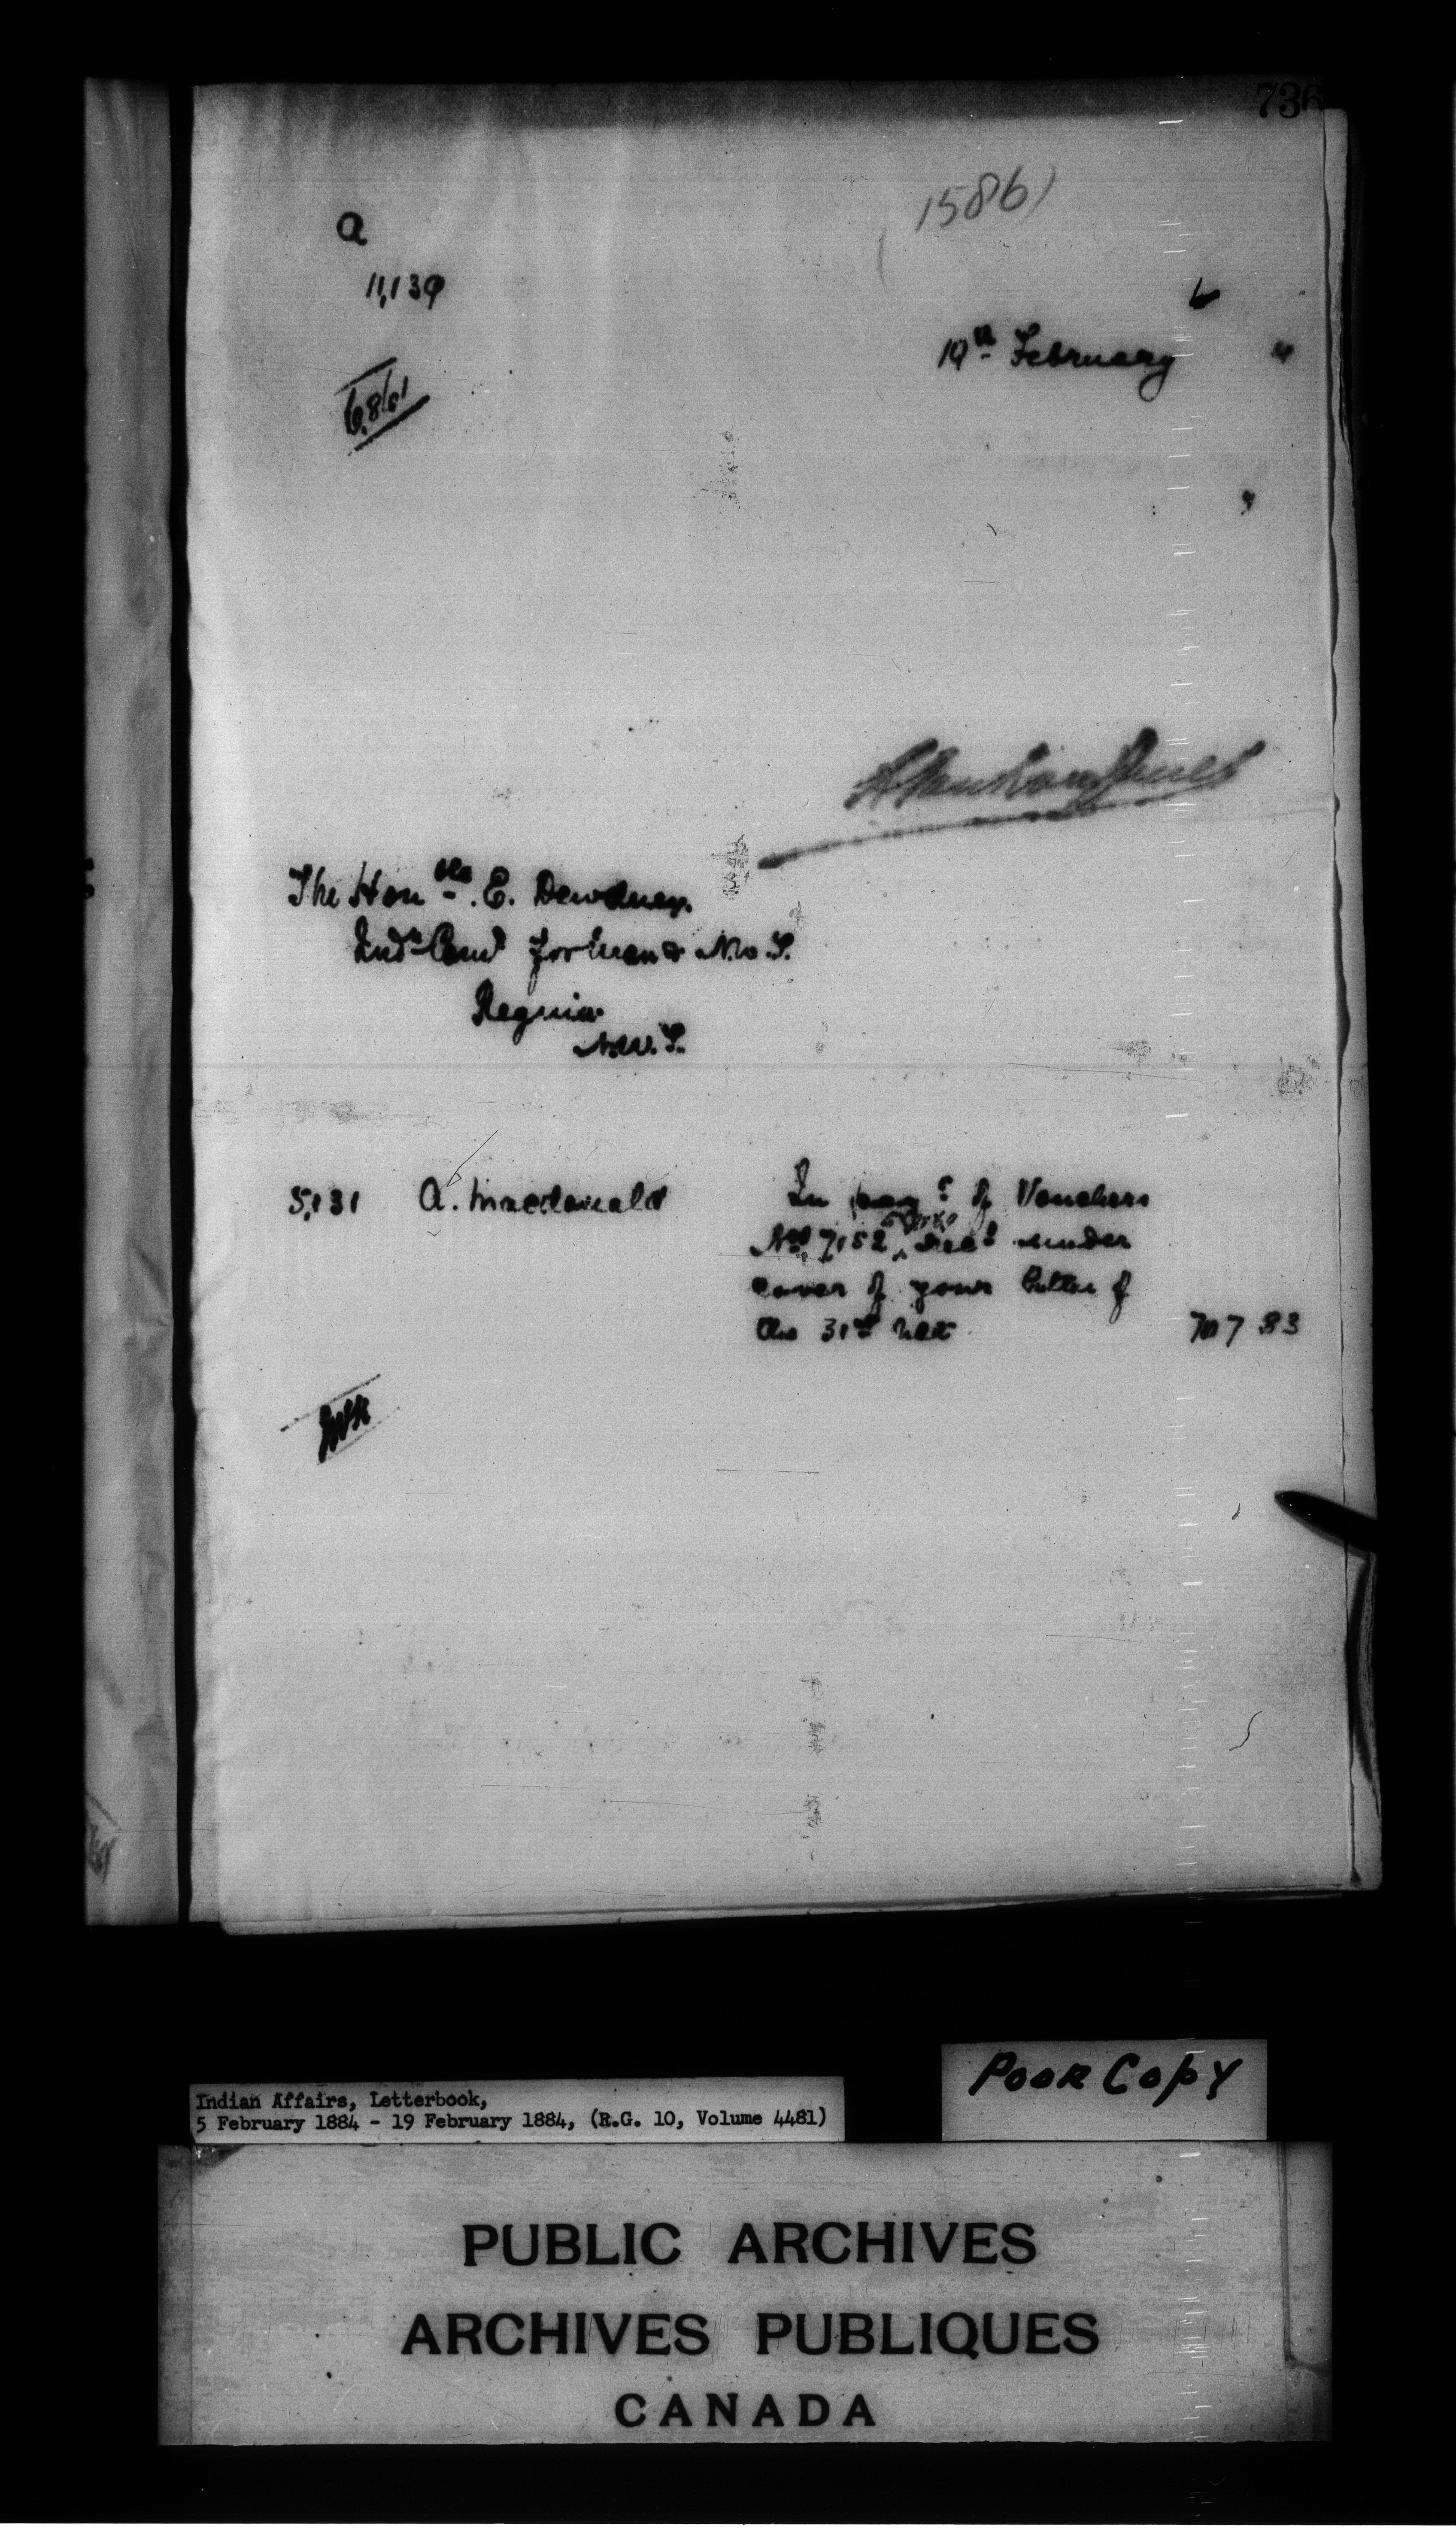 736
(1586)
a
11,139
19th February
The Honble. E. Dewdney.
Indn Comr for Man & N.W.T.
Regina
N.W.T.
5,131 A. Macdonald In paymt of Vouchers
Nos 7152, recd under
cover of your letter of
the 31st Ult 707 83
POOR COPY
Indian Affairs, Letterbook,
5 February 1884 - 19 February 1884, (R.G. 10, Volume 4481)
PUBLIC ARCHIVES
ARCHIVES PUBLIQUES
CANADA